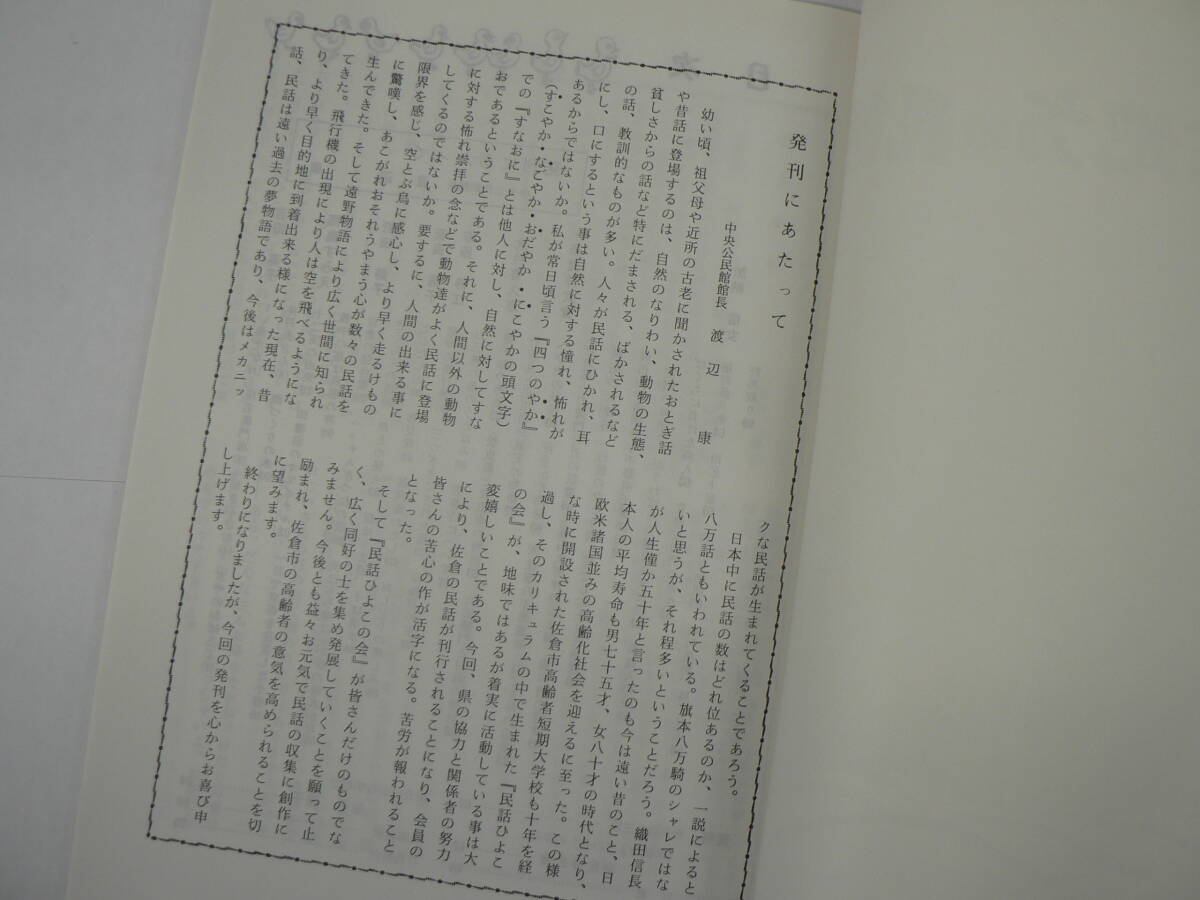 発刊にあたって
中央公民館館長　渡辺　康
幼い頃、祖父母や近所の古老に聞かされたおとぎ話
や昔話に登場するのは、自然のなりわい、動物の生態、
貧しさからの話など特にだまされる、ばかされるなど
の話、教訓的なものが多い。人々が民話にひかれ、耳
にし、口にするという事は自然に対する憧れ、怖れが
あるからではないか。私が常日頃言う『四つのやか』
（すこやか・なごやか・おだやか・にこやかの頭文字）
での『すなおに』とは他人に対し、自然に対してすな
おであるということである。それに、人間以外の動物
に対する怖れ崇拝の念などで動物達がよく民話に登場
してくるのではないか。要するに、人間の出来る事に
限界を感じ、空とぶ鳥に感心し、より早く走るけもの
に驚嘆し、あこがれおそれうやまう心が数々の民話を
生んできた。そして遠野物語により広く世間に知られ
てきた。飛行機の出現により人は空を飛べるようにな
り、より早く目的地に到着出来る様になった現在、昔
話、民話は遠い過去の夢物語であり、今後はメカニッ
クな民話が生まれてくることであろう。
日本中に民話の数はどれ位あるのか、一説によると
八万話ともいわれている。旗本八万騎のシャレではな
いと思うが、それ程多いということだろう。織田信長
が人生僅か五十年と言ったのも今は遠い昔のこと、日
本人の平均寿命も男七十五才、女八十才の時代となり、
欧米諸国並みの高齢化社会を迎えるに至った。この様
な時に開設された佐倉市高齢者短期大学校も十年を経
過し、そのカリキュラムの中で生まれた『民話ひよこ
の会』が、地味ではあるが着実に活動している事は大
変嬉しいことである。今回、県の協力と関係者の努力
により、佐倉の民話が刊行されることになり、会員の
皆さんの苦心の作が活字になる。苦労が報われること
となった。
そして『民話ひよこの会』が皆さんだけのものでな
く、広く同好の士を集め発展していくことを願って止
みません。今後とも益々お元気で民話の収集に創作に
励まれ、佐倉市の高齢者の意気を高められることを切
に望みます。
終わりになりましたが、今回の発刊を心からお喜び申
し上げます。